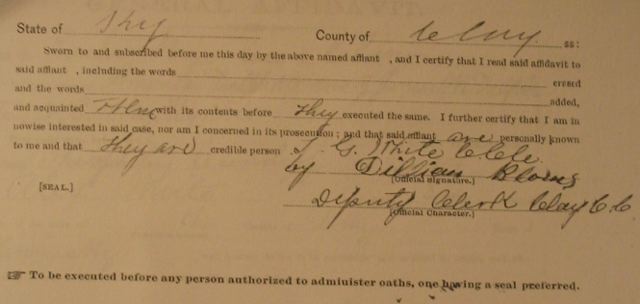 State of Ky County of Clay ss:
Sworn to and subscribed before me this day by the above named affiant , and I certify that I read said affidavit to
said affiant , including the words erased
and the words added,
and acquainted them with its contents before they executed the same. I further certify that I am in
nowise interested in said case, nor am I concerned in its prosecution ; and that said affiant are personally known
to me and that they are credible person s. G. White Clk.
by Dillian
[Official Signature.]
[SEAL.] Deputy Clerk Clay C. C.
[Official Character.]
☞ To be executed before any person authorized to administer oaths, one having a seal preferred.